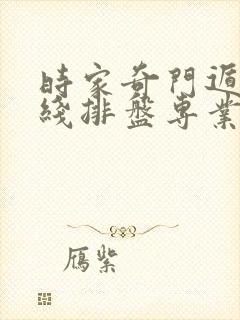 時家奇門遁
綫排盤專業
鴈紫